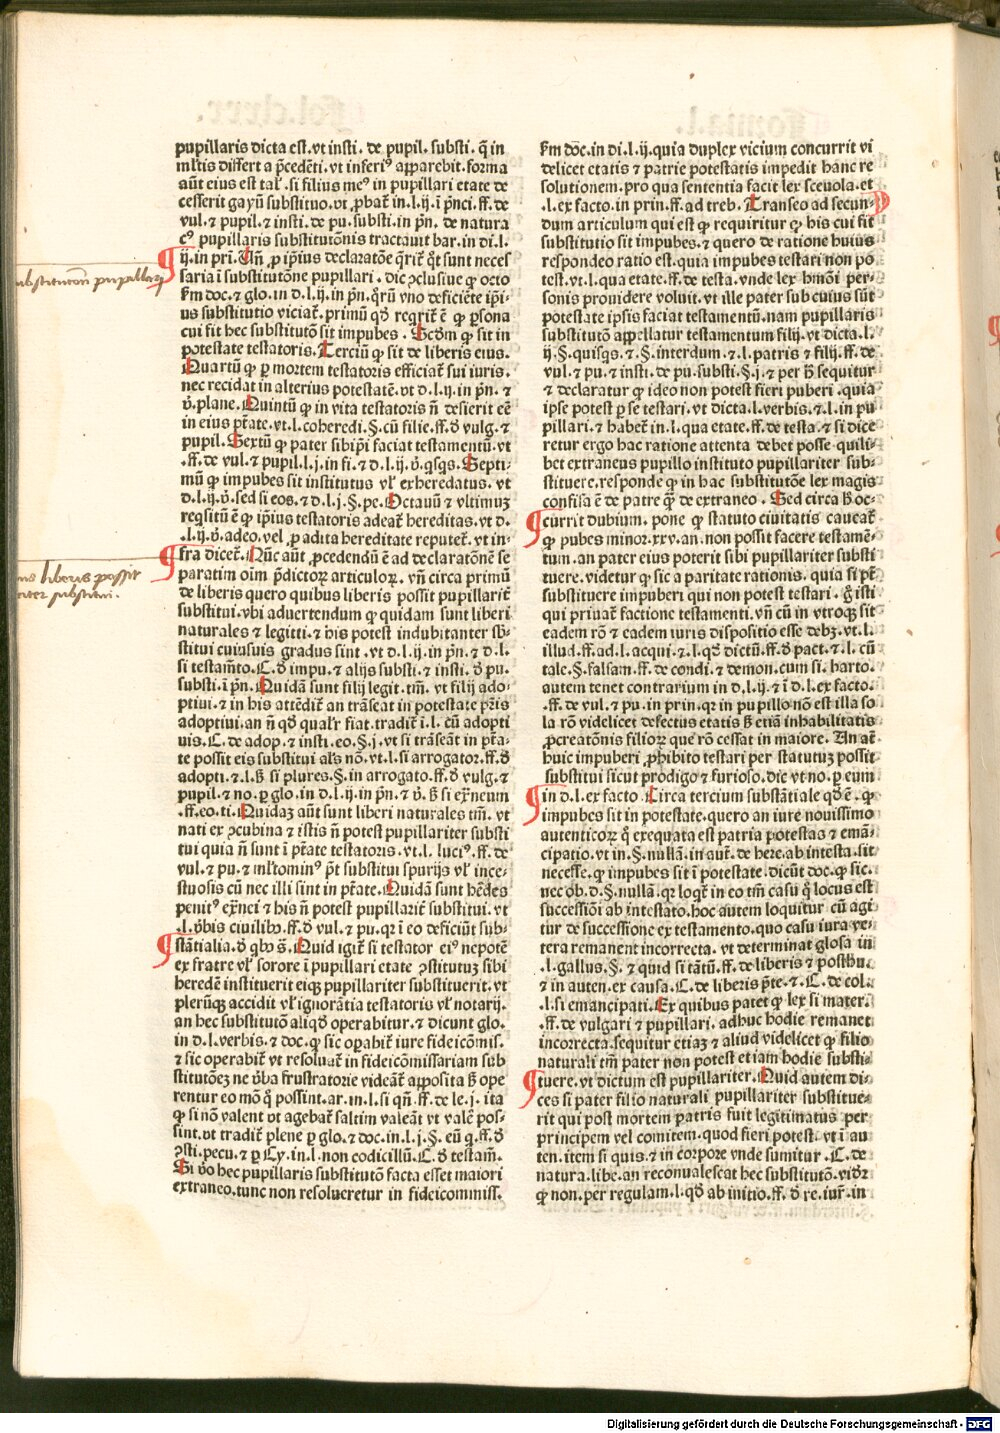 pupillaris dicta est. vt insti. de pupil. substi. q̄ in
ml̄tis differt a p̄cedēti. vt inferiꝰ apparebit. forma
aūt eius est tal̄. si filius meꝰ in pupillari etate de
cesserit gayū substituo. vt ꝓbat̄ in. l. ij. ī pn̄ci. ff. de
vul. ⁊ pupil. ⁊ insti. de pu. substi. in pn̄. de natura
cꝰ pupillaris substitutōnis tractauit bar. in di. l.
ij. in pri. Un̄ ꝓ ip̄ius declaratōe q̄rit̄ q̄t sunt neces
saria ī substitutōne pupillari. Dic ꝯclusiue ꝙ octo
ẜm doc. ⁊ glo. in d. l. ij. in pn̄. q̄rū vno deficiēte ip̄i⸗
us substitutio viciat̄. primū qd̄ reqrit̄ ē ꝙ ꝑsona
cui fit hec substitutō sit impubes. Scd̄m ꝙ sit in
potestate testatoris. Terciū ꝙ sit de liberis eius.
Quartū ꝙ ꝑ mortem testatoris efficiat̄ sui iuris.
nec recidat in alterius potestatē. vt d. l. ij. in pn̄. ⁊
v̄. plane. Quintū ꝙ in vita testatoris n̄ desierit eē
in eius pt̄ate. vt. l. coheredi. §. cū filie. ff. d̄ vulg. ⁊
pupil. Sextū ꝙ pater sibip̄i faciat testamentū. vt
.ff. de vul. ⁊ pupil. l. j. in fi. ⁊ d. l. ij. v̄. qsqs. Septi⸗
mū ꝙ impubes sit institutus vl̄ exheredatus. vt
d. l. ij. v̄. sed si eos. ⁊ d. l. j. §. pe. Octauū ⁊ vltimuꝫ
reqsitū ē ꝙ ip̄ius testatoris adeat̄ hereditas. vt d.
.l. ij. v̄. adeo. vel ꝓ adita hereditate reputet̄. vt in⸗
fra dicet̄. Nūc aūt ꝓcedendū ē ad declaratōnē se
paratim oīm p̄dictoꝝ articuloꝝ. vn̄ circa primū
de liberis quero quibus liberis possit pupillarit̄
substitui. vbi aduertendum ꝙ quidam sunt liberi
naturales ⁊ legitti. ⁊ his potest indubitanter sb̄⸗
stitui cuiusuis gradus sint. vt d. l. ij. in pn̄. ⁊ d. l.
si testam̄to. C. d̄ impu. ⁊ alijs substi. ⁊ insti. d̄ pu.
substi. ī pn̄. Quidā sunt filij legit. tm̄. vt filij ado⸗
ptiui. ⁊ in his attēdit̄ an trāseat in potestatē pr̄is
adoptiui. an n̄ qd̄ qual̄r fiat. tradit̄ ī. l. cū adopti
uis. C. de adop. ⁊ insti. eo. §. j. vt si trāseāt in pt̄a⸗
te possit eis substitui al̄s nō. vt. l. si arrogatoꝛ. ff. d̄
adopti. ⁊. l. ꝫ si plures. §. in arrogato. ff. d̄ vulg. ⁊
pupil. ⁊ no. ꝑ glo. in d. l. ij. in pn̄. ⁊ v̄. ꝫ si ex̄neum
.ff. eo. ti. Quidaꝫ aūt sunt liberi naturales tm̄. vt
nati ex ꝯcubina ⁊ istis n̄ potest pupillariter substi
tui quia n̄ sunt ī pt̄ate testatoris. vt. l. luciꝰ. ff. de
vul. ⁊ pu. ⁊ ml̄tominꝰ pn̄t substitui spurijs vl̄ ince⸗
stuosis cū nec illi sint in pt̄ate. Quidā sunt hēdes
penitꝰ ex̄nei ⁊ his n̄ potest pupillarit̄ substitui. vt
.l. v̄bis ciuilibꝰ. ff. d̄ vul. ⁊ pu. qꝛ ī eo deficiūt sub⸗
stātialia. d̄ qbꝰ s̄. Quid igit̄ si testator eiꝰ nepotē
ex fratre vl̄ sorore ī pupillari etate ꝯstitutuꝫ sibi
heredē instituerit eiqꝫ pupillariter substituerit. vt
plerūqꝫ accidit vl̄ ignorātia testatoris vl̄ notarij.
an hec substitutō aliqd̄ operabitur. ⁊ dicunt glo.
in d. l. verbis. ⁊ doc. ꝙ sic oꝑabit̄ iure fideicōmis.
⁊ sic operabit̄ vt resoluat̄ in fideicōmissariam sub
stitutōeꝫ ne v̄ba frustratorie videāt̄ apposita ꝫ ope
rentur eo mō q̄ possint. ar. in. l. si qn̄. ff. de le. j. ita
ꝙ si nō valent vt agebat̄ saltim valeāt vt valē pos⸗
sint. vt tradit̄ plene ꝑ glo. ⁊ doc. in. l. j. §. eū q̄. ff. d̄
ꝯsti. pecu. ⁊ ꝑ Cy. in. l. non codicillū. C. d̄ testam̄.
Si v̄o hec pupillaris substitutō facta esset maiori
extraneo. tunc non resolueretur in fideicommiss.
ẜm doc. in di. l. ij. quia duplex vicium concurrit vi
delicet etatis ⁊ patrie potestatis impedit hanc re
solutionem. pro qua sententia facit lex sceuola. et
.l. ex facto. in prin. ff. ad treb. Transeo ad secun⸗
dum articulum qui est ꝙ requiritur ꝙ his cui fit
substitutio sit impubes. ⁊ quero de ratione huius
respondeo ratio est. quia impubes testari non po
test. vt. l. qua etate. ff. de testa. vnde lex hmōi per⸗
sonis prouidere voluit. vt ille pater sub cuius sūt
potestate ipsis faciat testamentū. nam pupillaris
substitutō appellatur testamentum filij. vt dicta. l.
ij. §. quisqs. ⁊. §. interdum. ⁊. l. patris ⁊ filij. ff. de
vul. ⁊ pu. ⁊ insti. de pu. substi. §. j. ⁊ per ꝫ sequitur
⁊ declaratur ꝙ ideo non potest fieri puberi. quia
ipse potest ꝑ se testari. vt dicta. l. verbis. ⁊. l. in pu
pillari. ⁊ habet̄ in. l. qua etate. ff. de testa. ⁊ si dice
retur ergo hac ratione attenta debet posse quili⸗
bet extraneus pupillo instituto pupillariter sub⸗
stituere. responde ꝙ in hac substitutōe lex magis
confisa ē de patre q̄ de extraneo. Sed circa ꝫ oc⸗
currit dubium. pone ꝙ statuto ciuitatis caueat̄
ꝙ pubes minor. xxv. an. non possit facere testamē⸗
tum. an pater eius poterit sibi pupillariter substi
tuere. videtur ꝙ sic a paritate rationis. quia si pt̄
substituere impuberi qui non potest testari. g̊ isti
qui priuat̄ factione testamenti. vn̄ cū in vtroqꝫ sit
eadem rō ⁊ eadem iuris dispositio esse debꝫ. vt. l.
illud. ff. ad. l. acqui. ⁊. l. qd̄ dictū. ff. d̄ pact. ⁊. l. cū
tale. §. falsam. ff. de condi. ⁊ demon. cum si. harto.
autem tenet contrarium in d. l. ij. ⁊ ī d. l. ex facto.
.ff. de vul. ⁊ pu. in prin. qꝛ in pupillo nō est illa so
la rō videlicet defectus etatis ꝫ etiā inhabilitatis
ꝓcreatōnis filioꝝ que rō cessat in maiore. An at̄
huic impuberi ꝓhibito testari per statutuꝫ possit
substitui sicut prodigo ⁊ furioso. dic vt no. ꝑ eum
in d. l. ex facto. Circa tercium substātiale qd̄ ē. ꝙ
impubes sit in potestate. quero an iure nouissimo
autenticoꝝ q̄ exequata est patria potestas ⁊ emā⸗
cipatio. vt in. §. nullā. in aut̄. de here. ab intesta. sit
necesse. ꝙ impubes sit ī potestate. dicūt doc. ꝙ sic.
nec ob. d. §. nullā. qꝛ loqt̄ in eo tm̄ casu q̄ locus est
successiōi ab intestato. hoc autem loquitur cū agi
tur de successione ex testamento. quo casu iura ve⸗
tera remanent incorrecta. vt determinat glosa in
.l. gallus. §. ⁊ quid si tātū. ff. de liberis ⁊ posthu.
⁊ in auten. ex causa. C. de liberis p̄te. ⁊. C. de col.
.l. si emancipati. Ex quibus patet ꝙ lex si mater.
.ff. de vulgari ⁊ pupillari. adhuc hodie remanet
incorrecta. sequitur etiaꝫ ⁊ aliud videlicet ꝙ filio
naturali tm̄ pater non potest etiam hodie substi⸗
tuere. vt dictum est pupillariter. Quid autem di⸗
ces si pater filio naturali pupillariter substitue⸗
rit qui post mortem patris fuit legitimatus per
principem vel comitem. quod fieri potest. vt ī au
ten. item si quis. ⁊ in corpore vnde sumitur. C. de
natura. libe. an reconualescat hec substitutō. vid̄r
ꝙ non. per regulam. l. qd̄ ab initio. ff. d̄ re. iur̄. in